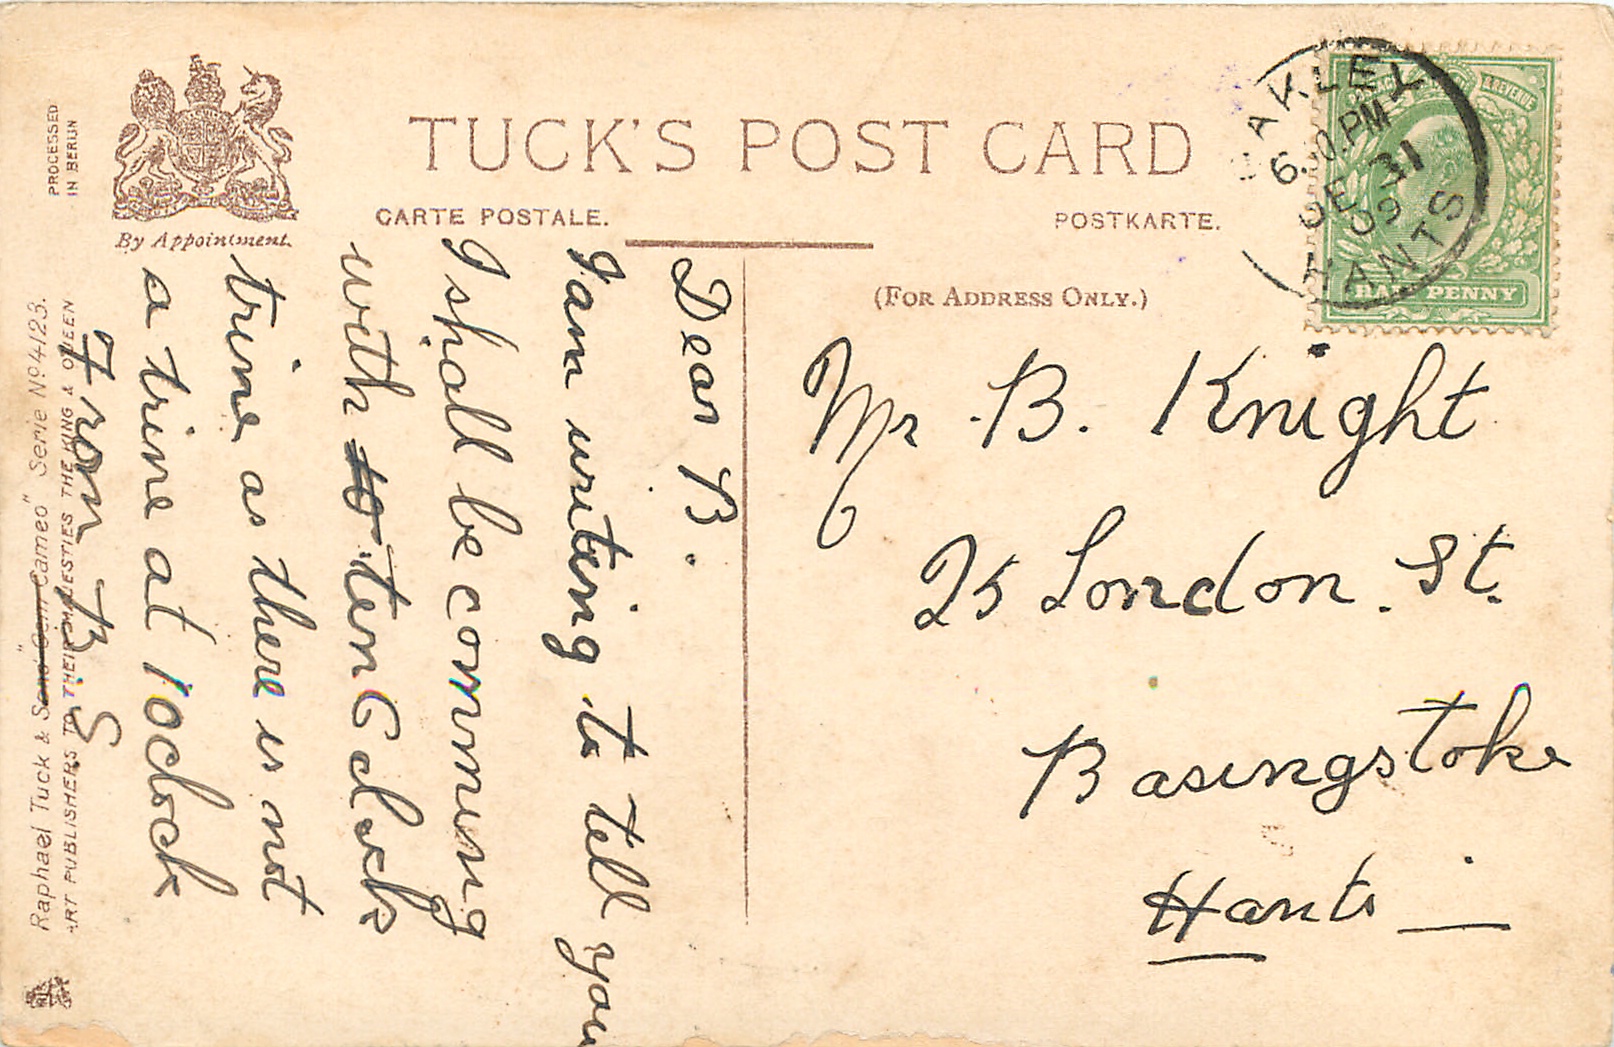 PROCESSED
IN BERLIN
By Appointment.
TUCK'S POST CARD
CARTE POSTALE.
POSTKARTE.
(FOR ADDRESS ONLY.)
OAKLEY
PM
DE 31
09
HANTS
REVENUE
HALF PENNY
Mr B. Knight
25 London. St.
Basingstoke
Hants
Dear B.
I am writing to tell you
I shall be comming
with ten Oclock
trine as there is not
a trine at 1 oclock
From B. S
Raphael Tuck & Sons' "Gem Cameo" Serie No 4123.
ART PUBLISHERS TO THEIR MAJESTIES THE KING & QUEEN